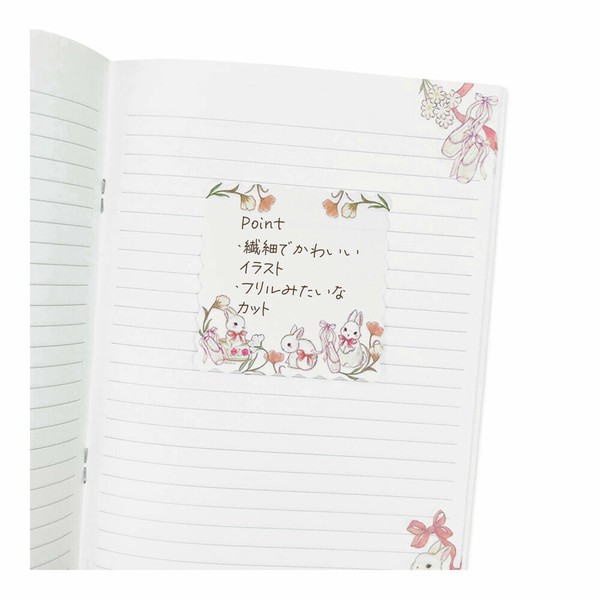 Point
・繊細でかわいい
イラスト
・フリルみたいな
カット